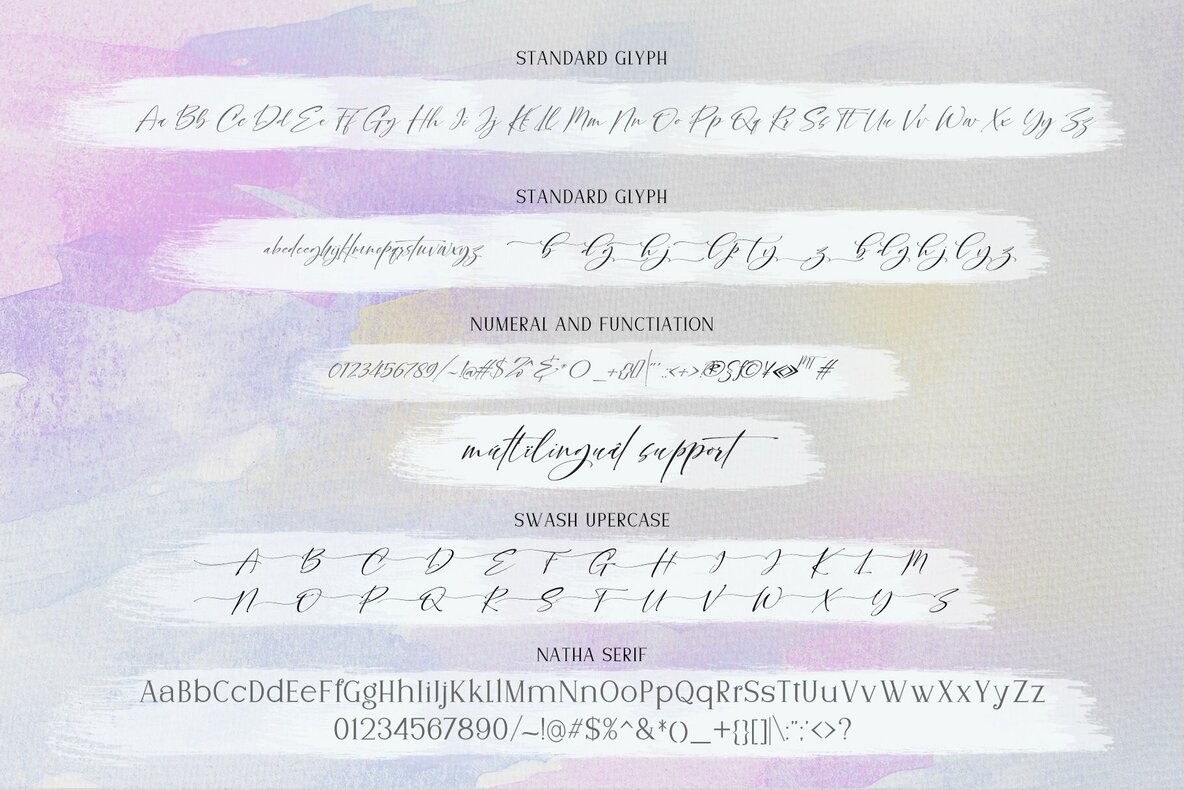 STANDARD GLYPH
Aa Bb Cc Dd Ee Ff Gg Hh Ii Jj Kk Ll Mm Nn Oo Pp Qq Rr Ss Tt Uu Vv Ww Xx Yy Zz
STANDARD GLYPH
b dg hj lp ty z b d g h j l y z
NUMERAL AND FUNCTIATION
0123456789/~!@#$%^&*() _+{}[]|"':;<+>
múltilinguâl support
SWASH UPERCASE
A B C D E F G H I J K L M
N O P Q R S T U V W X Y Z
NATHA SERIF
AaBbCcDdEeFfGgHhIiJjKkLlMmNnOoPpQqRrSsTtUuVvWwXxYyZz
01234567890/~!@#$%^&*()_+{}[]|\:";'<>?